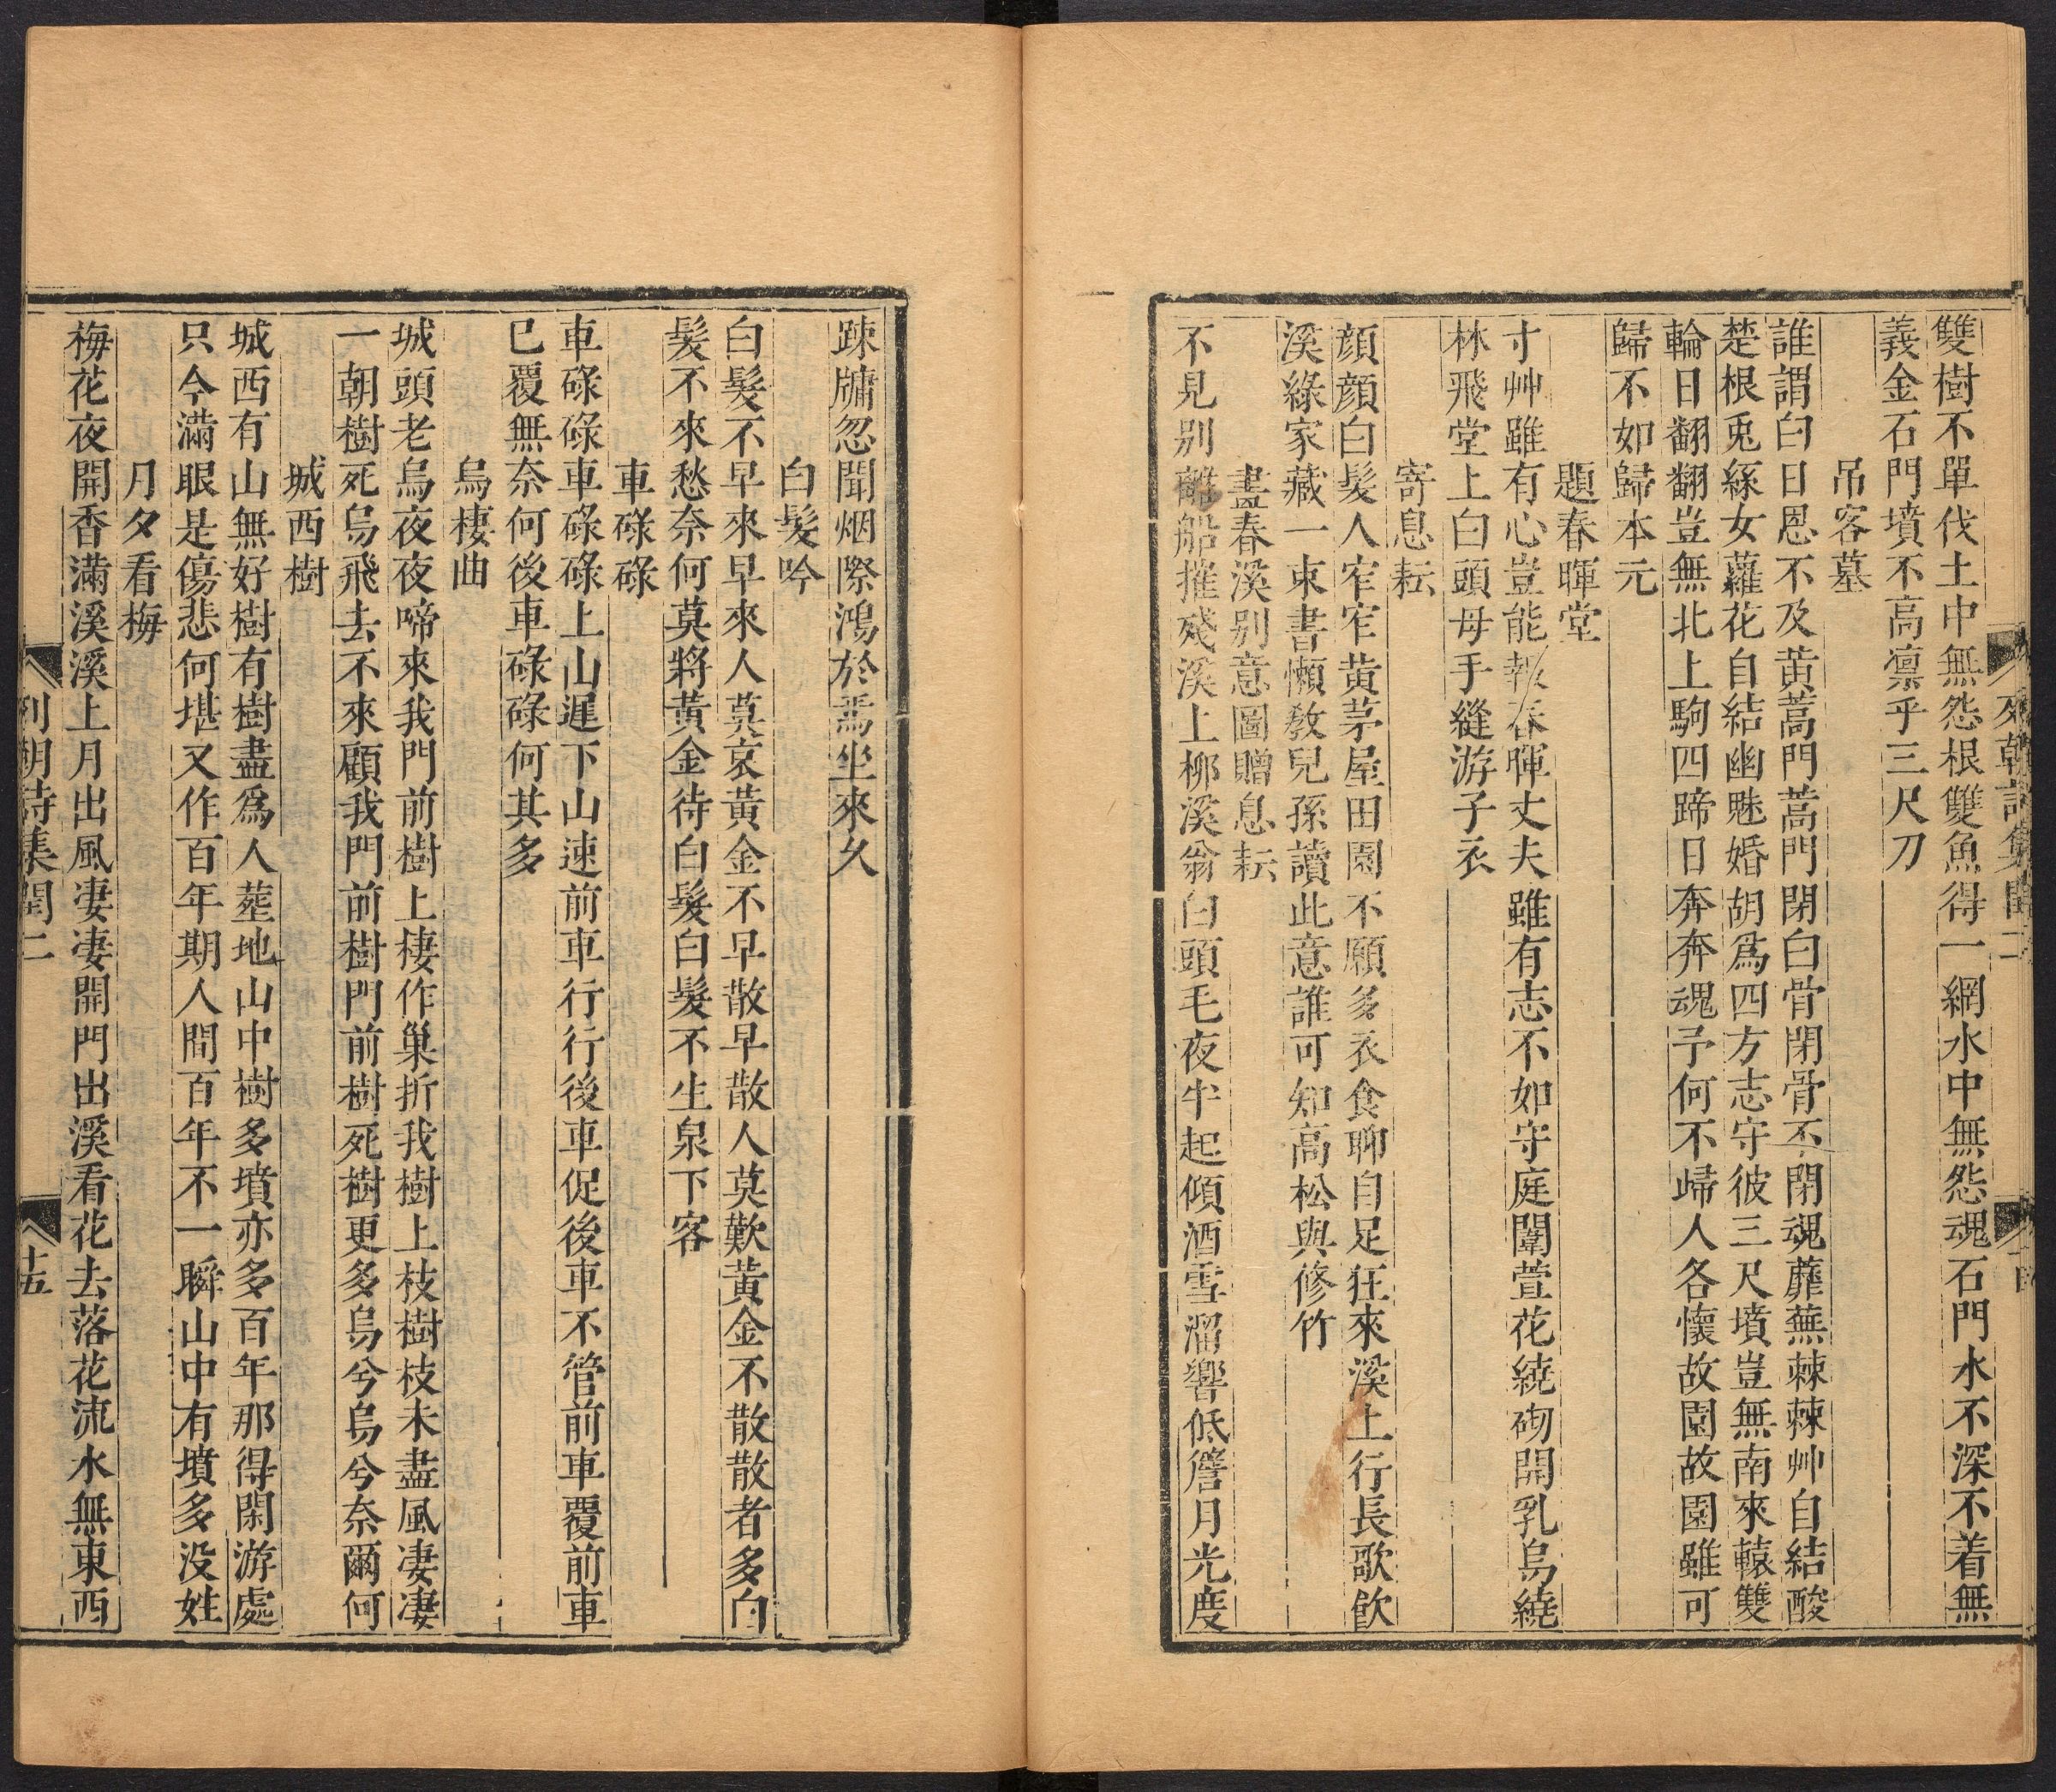 雙樹不單伐土中無怨根雙魚得一網水中無怨魂石門水不深不着無
義金石門墳不高凛乎三尺刀
吊客墓
誰謂白日恩不及黄蒿門蒿門閉白骨閉骨不閉魂蘼蕪棘棘艸自結酸
楚根兎絲女蘿花自結幽魅婚胡爲四方志守彼三尺墳豈無南來轅雙
輪日翻翻豈無北上駒四蹄日奔奔魂予何不歸人各懷故園故園雖可
歸不如歸本元
題春暉堂
寸艸雖有心豈能報春暉丈夫雖有志不如守庭闈萱花繞砌開乳烏繞
林飛堂上白頭母手縫游子衣
寄息耘
顔顔白髮人窄窄黄茅屋田園不願多衣食聊自足狂來溪上行長歌飲
溪綠家藏一束書懶敎兒孫讀此意誰可知高松與修竹
畫春溪别意圖贈息耘
不見别離船摧殘溪上栁溪翁白頭毛夜半起傾酒雪溜響低簷月光度
踈牗忽聞烟際鴻於焉坐來久
白髮吟
白髮不早來早來人莫哀黃金不早散早散人莫歎黃金不散散者多白
髮不來愁奈何莫將黃金待白髮白髮不生泉下客
車碌碌
車碌碌車碌碌上山遲下山速前車行行後車促後車不管前車覆前車
已覆無奈何後車碌碌何其多
烏棲曲
城頭老烏夜夜啼來我門前樹上棲作巢折我樹上枝樹枝未盡風凄凄
一朝樹死烏飛去不來顧我門前樹門前樹死樹更多烏兮烏兮奈爾何
城西樹
城西有山無好樹有樹盡爲人塟地山中樹多墳亦多百年那得閑游處
只今滿眼是傷悲何堪又作百年期人間百年不一瞬山中有墳多没姓
月夕看梅
梅花夜開香滿溪溪上月出風凄凄開門出溪看花去落花流水無東西
列朝詩集閏二
十五